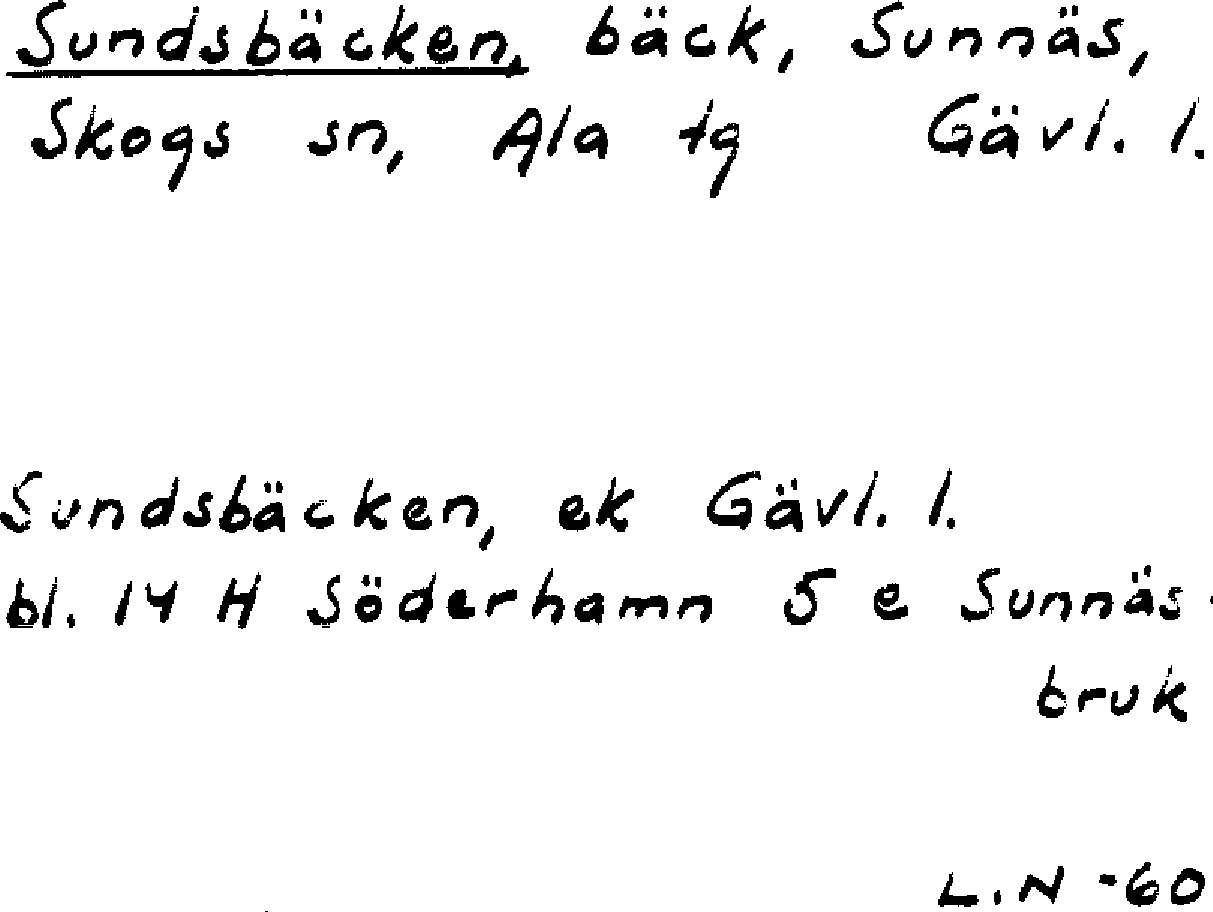 Sundsbäcken, bäck, Sunnäs,
Skogs sn, Ala tg Gävl. l.
Sundsbäcken, ek Gävl. l.
bl. 14 H Söderhamn 5 e Sunnäs-
bruk
L.N -60